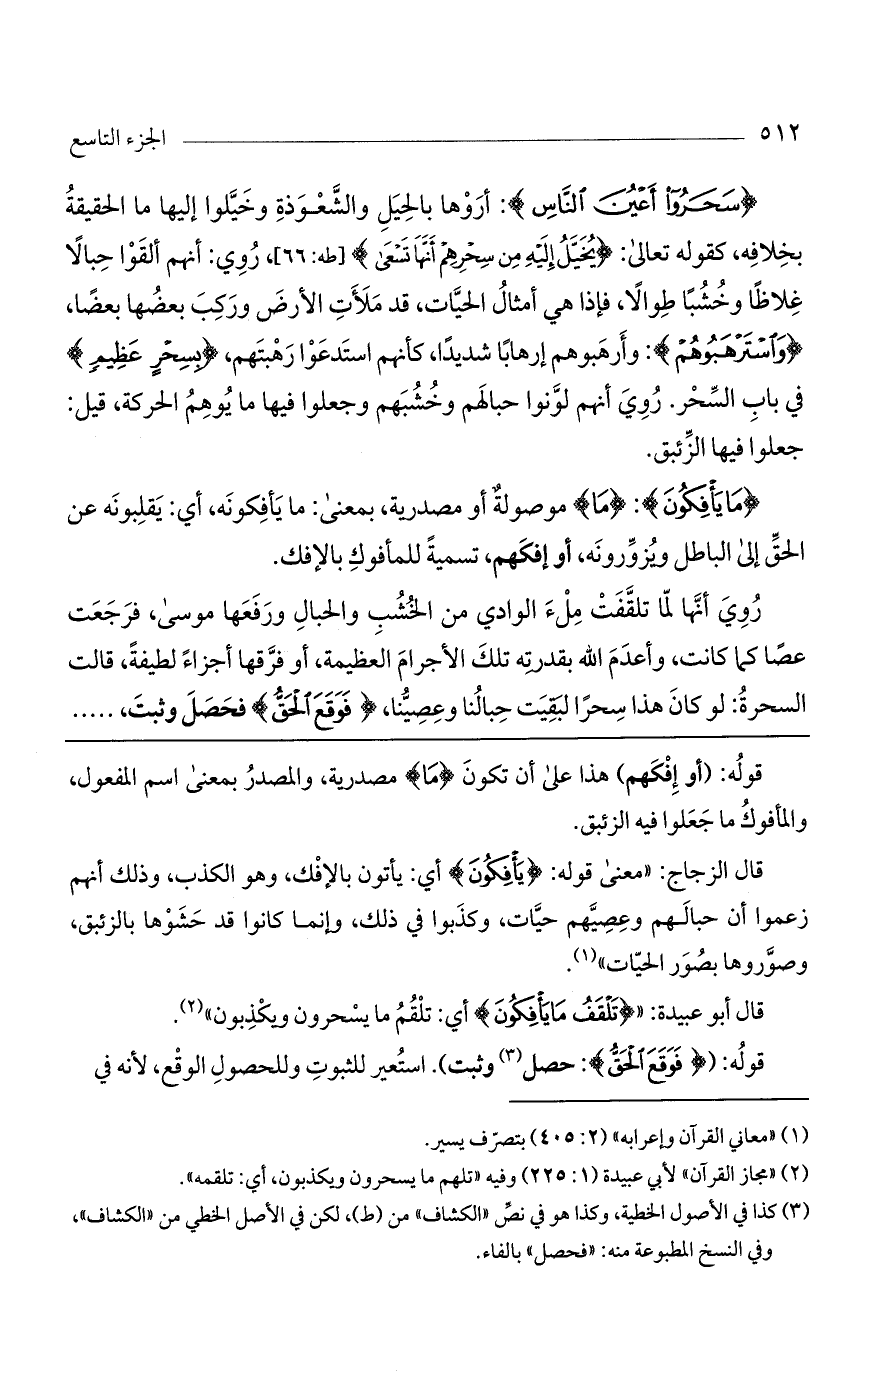 ٥١٢ الجزء التاسع
﴿سَحَرُوٓا۟ أَعْيُنَ ٱلنَّاسِ﴾: أرَوْها بالحِيَلِ والشَّعْوَذةِ وخَيَّلوا إليها ما الحقيقةُ
بخِلافِه، كقوله تعالىٰ: ﴿يُخَيَّلُ إِلَيْهِ مِن سِحْرِهِمْ أَنَّهَا تَسْعَىٰ﴾ [طه: ٦٦]، رُوِي: أنهم ألقَوْا حِبالًا
غِلاظًا وخُشُبًا طِوالًا، فإذا هي أمثالُ الحيَّات، قد مَلَأَتِ الأرضَ ورَكِبَ بعضُها بعضًا،
﴿وَٱسْتَرْهَبُوهُمْ﴾: وأَرهَبوهم إرهابًا شديدًا، كأنهم استَدعَوْا رَهْبتَهم، ﴿بِسِحْرٍ عَظِيمٍ﴾
في بابِ السِّحْر. رُوِيَ أنهم لوَّنوا حبالَهم وخُشُبَهم وجعلوا فيها ما يُوهِمُ الحركة، قيل:
جعلوا فيها الزِّئبق.
﴿مَا يَأْفِكُونَ﴾: ﴿مَا﴾ موصولةٌ أو مصدرية، بمعنىٰ: ما يَأفِكونَه، أي: يَقلِبونَه عن
الحقِّ إلىٰ الباطل ويُزوِّرونَه، أو إفكَهم، تسميةً للمأفوكِ بالإفك.
رُوِيَ أنَّها لمّا تلقَّفَتْ مِلْءَ الوادي من الخُشُبِ والحبالِ ورَفَعَها موسىٰ، فرَجَعَت
عصًا كما كانت، وأعدَمَ الله بقدرتِه تلكَ الأجرامَ العظيمة، أو فرَّقها أجزاءً لطيفةً، قالت
السحرةُ: لو كانَ هذا سِحرًا لبَقِيَت حِبالُنا وعِصِيُّنا، ﴿فَوَقَعَ ٱلْحَقُّ﴾ فحَصَلَ وثبتَ، .....
قولُه: (أو إفْكَهم) هذا علىٰ أن تكونَ ﴿مَا﴾ مصدرية، والمصدرُ بمعنىٰ اسم المفعول،
والمأفوكُ ما جَعَلوا فيه الزئبق.
قال الزجاج: «معنىٰ قوله: ﴿يَأْفِكُونَ﴾ أي: يأتون بالإفْك، وهو الكذب، وذلك أنهم
زعموا أن حبالَـهم وعِصِيَّهم حيَّات، وكذَبوا في ذلك، وإنمـا كانوا قد حَشَوْها بالزئبق،
وصوَّروها بصُوَر الحيّات»(١).
قال أبو عبيدة: «﴿تَلْقَفُ مَا يَأْفِكُونَ﴾ أي: تلْقُمُ ما يسْحرون ويكْذِبون»(٢).
قولُه: (﴿فَوَقَعَ ٱلْحَقُّ﴾: حصل(٣) وثبت). استُعير للثبوتِ وللحصولِ الوقْع، لأنه في
(١) «معاني القرآن وإعرابه» (٢: ٤٠٥) بتصرّف يسير.
(٢) «مجاز القرآن» لأبي عبيدة (١: ٢٢٥) وفيه «تلهم ما يسحرون ويكذبون، أي: تلقمه».
(٣) كذا في الأصول الخطية، وكذا هو في نصِّ «الكشاف» من (ط)، لكن في الأصل الخطي من «الكشاف»،
وفي النسخ المطبوعة منه: «فحصل» بالفاء.